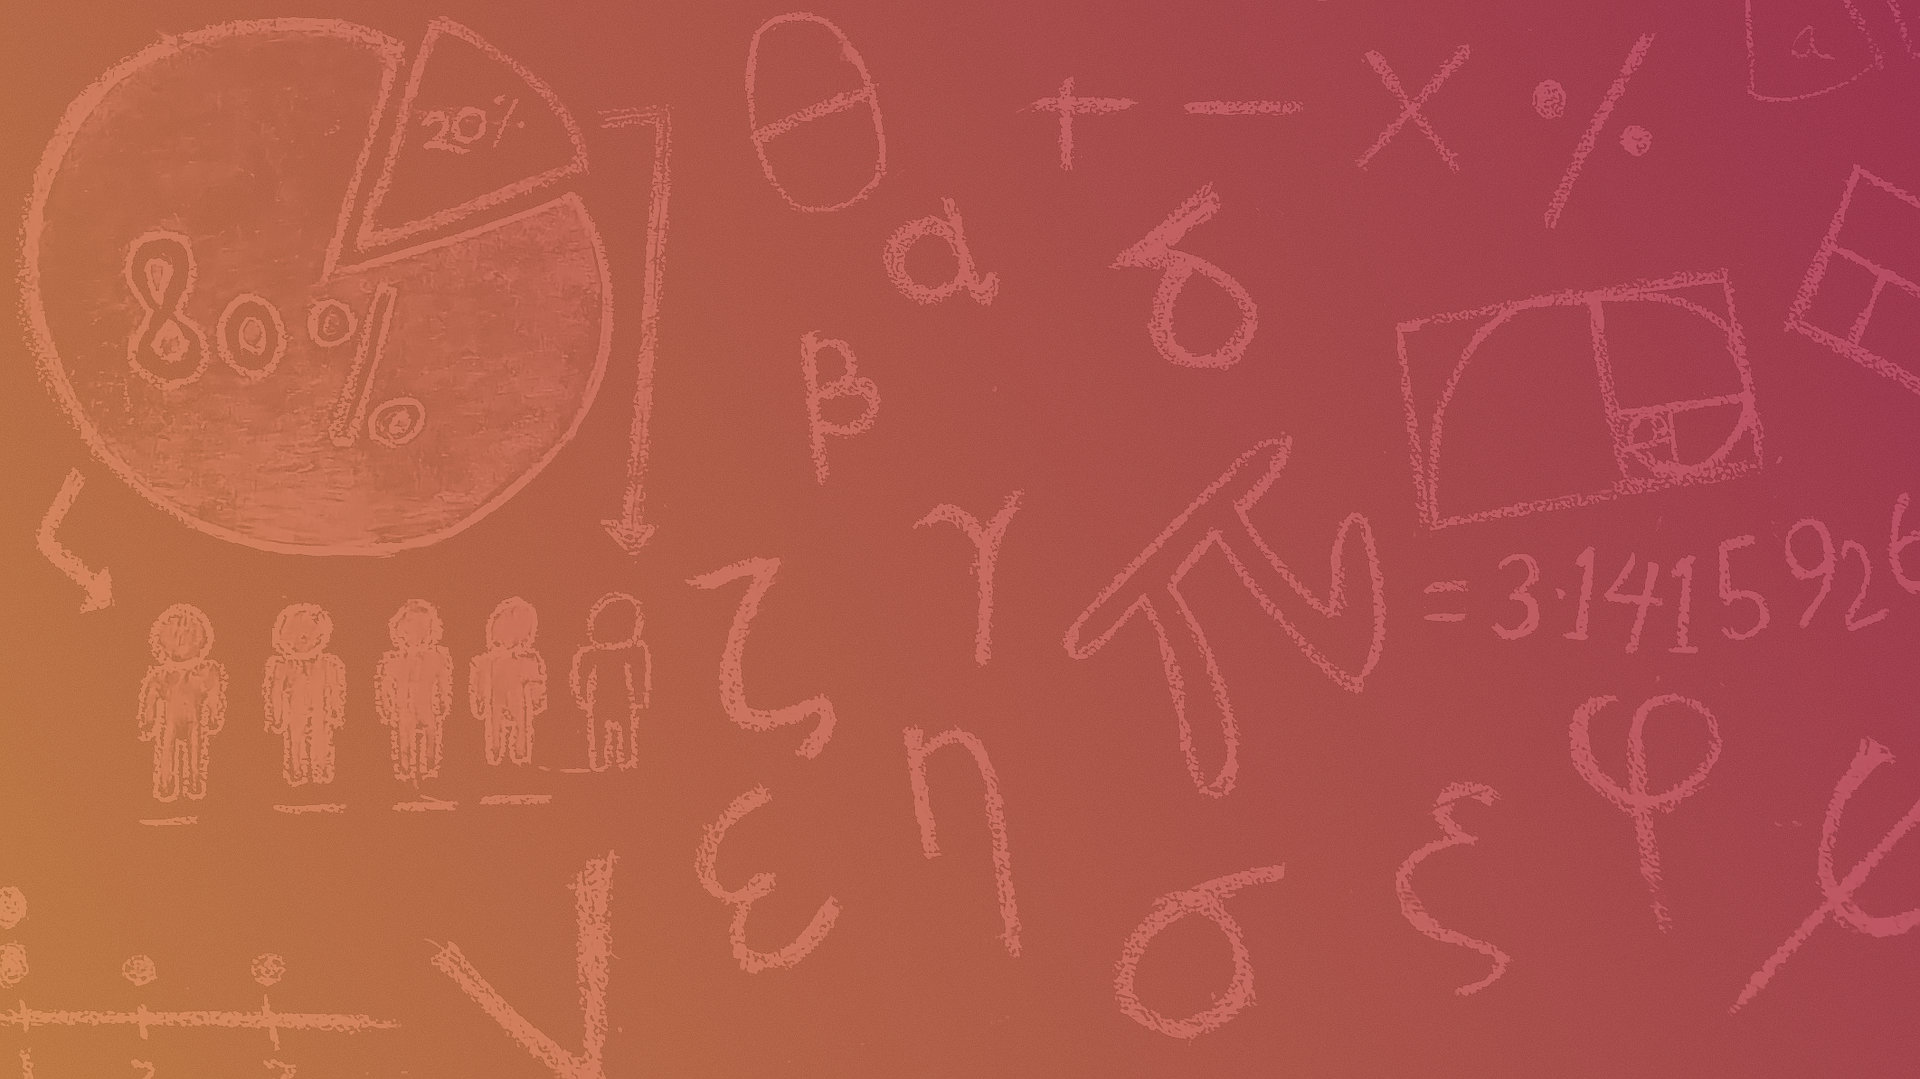 20%
80%
θ + − × %
a
α δ
β
γ
π = 3·1415926
ζ
η
φ
ε
σ
ξ
ψ